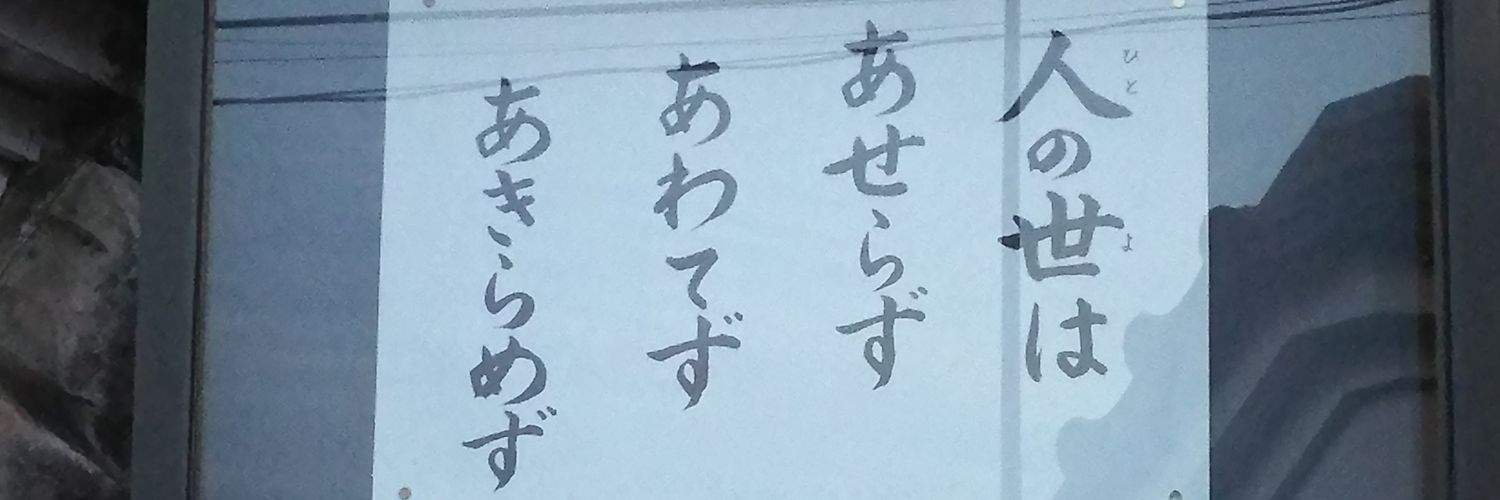 人の世は
あせらず
あわてず
あきらめず
ひと
よ